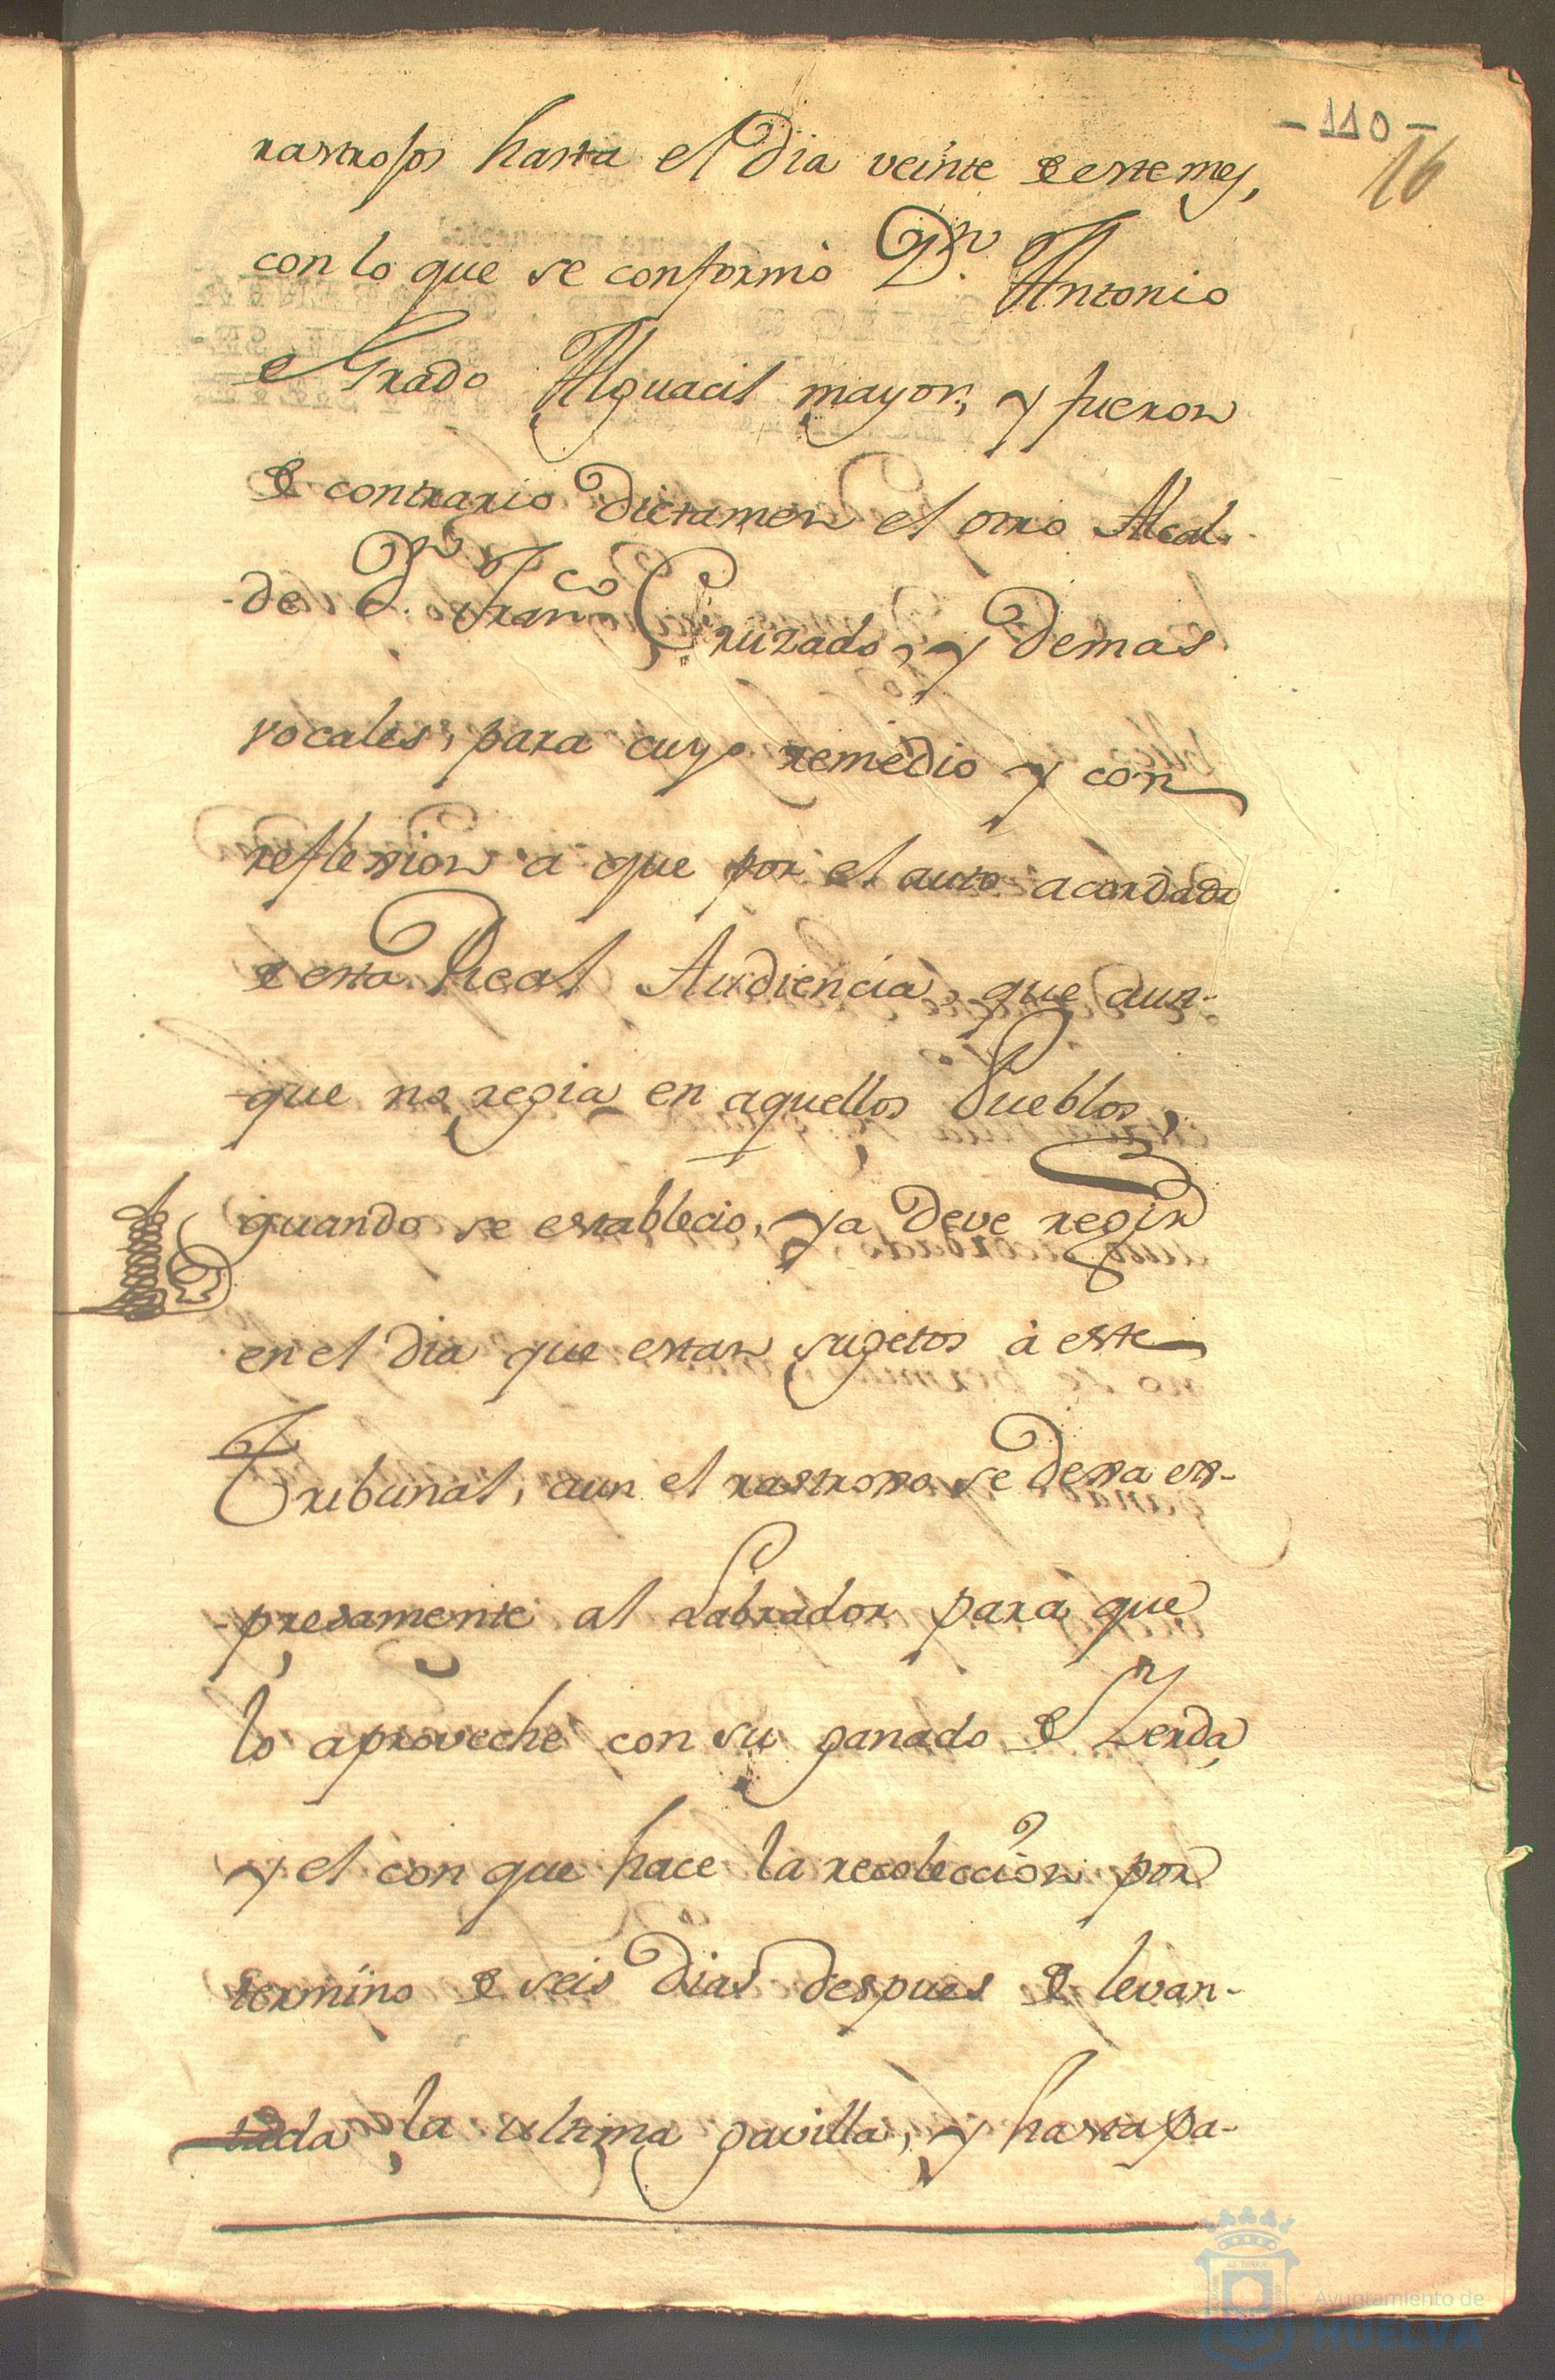 - 110 -
16
rastrojos hasta el dia veinte de este mes,
con lo que se conformò Dn. Antonio
de Prado Alguacil mayor, y fueron
de contrario dictamen el otro Alcal-
-de Dn. Franco. Cruzado, y demas
vocales, para cuyo remedio y con
reflexion a que por el auto acordado
de esta Real Audiencia, que aun-
que no regia en aquellos Pueblos,
quando se establecio, ya deve regir
en el dia que estan sugetos à este
Tribunal, aun el rastroxo se dexa ex-
-presamente al Labrador para que
lo aproveche con su ganado de Zerda
y el con que hace la recoleccion por
termino de seis dias despues de levan-
tada la ultima gavilla, y hasta pa-
Ayuntamiento de
HUELVA